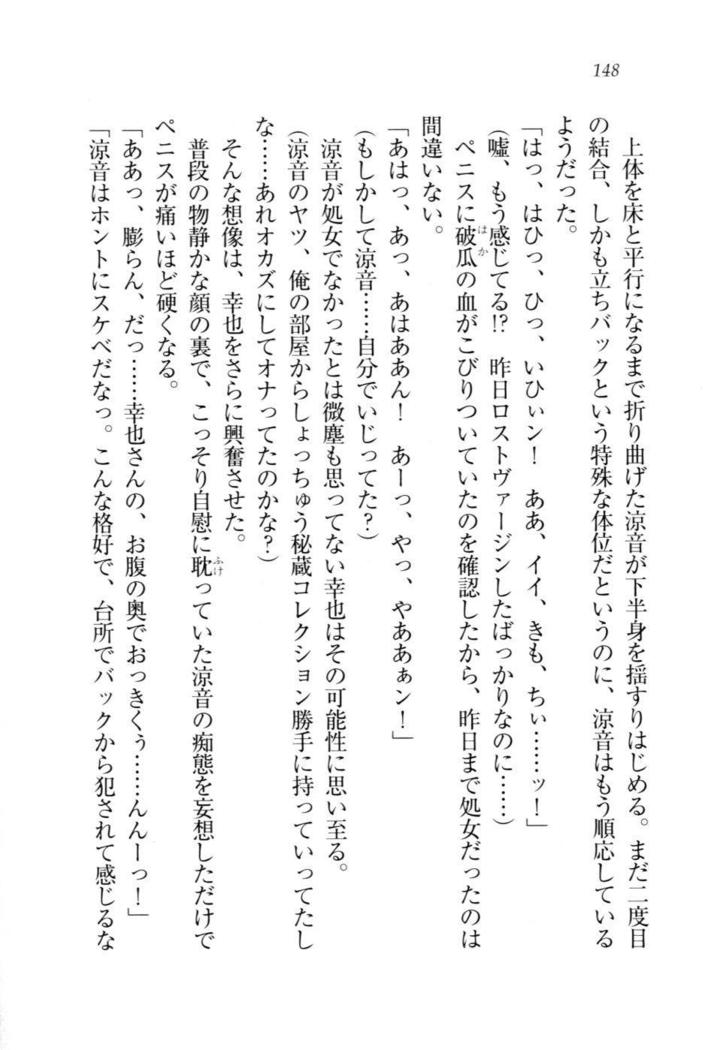 148
上体を床と平行になるまで折り曲げた涼音が下半身を揺すりはじめる。まだ二度目
の結合、しかも立ちバックという特殊な体位だというのに、涼音はもう順応している
ようだった。
「はっ、はひっ、ひっ、いひぃン！　ああ、イイ、きも、ちぃ……ッ！」
（嘘、もう感じてる!?　昨日ロストヴァージンしたばっかりなのに……）
ペニスに破瓜の血がこびりついていたのを確認したから、昨日まで処女だったのは
間違いない。
「あはっ、あっ、あはああん！　あーっ、やっ、やああぁン！」
（もしかして涼音……自分でいじってた？）
涼音が処女でなかったとは微塵も思ってない幸也はその可能性に思い至る。
（涼音のヤツ、俺の部屋からしょっちゅう秘蔵コレクション勝手に持っていってたし
な……あれオカズにしてオナってたのかな？）
そんな想像は、幸也をさらに興奮させた。
普段の物静かな顔の裏で、こっそり自慰に耽っていた涼音の痴態を妄想しただけで
ペニスが痛いほど硬くなる。
「ああっ、膨らん、だっ……幸也さんの、お腹の奥でおっきくぅ……んんーっ！」
「涼音はホントにスケベだなっ。こんな格好で、台所でバックから犯されて感じるな